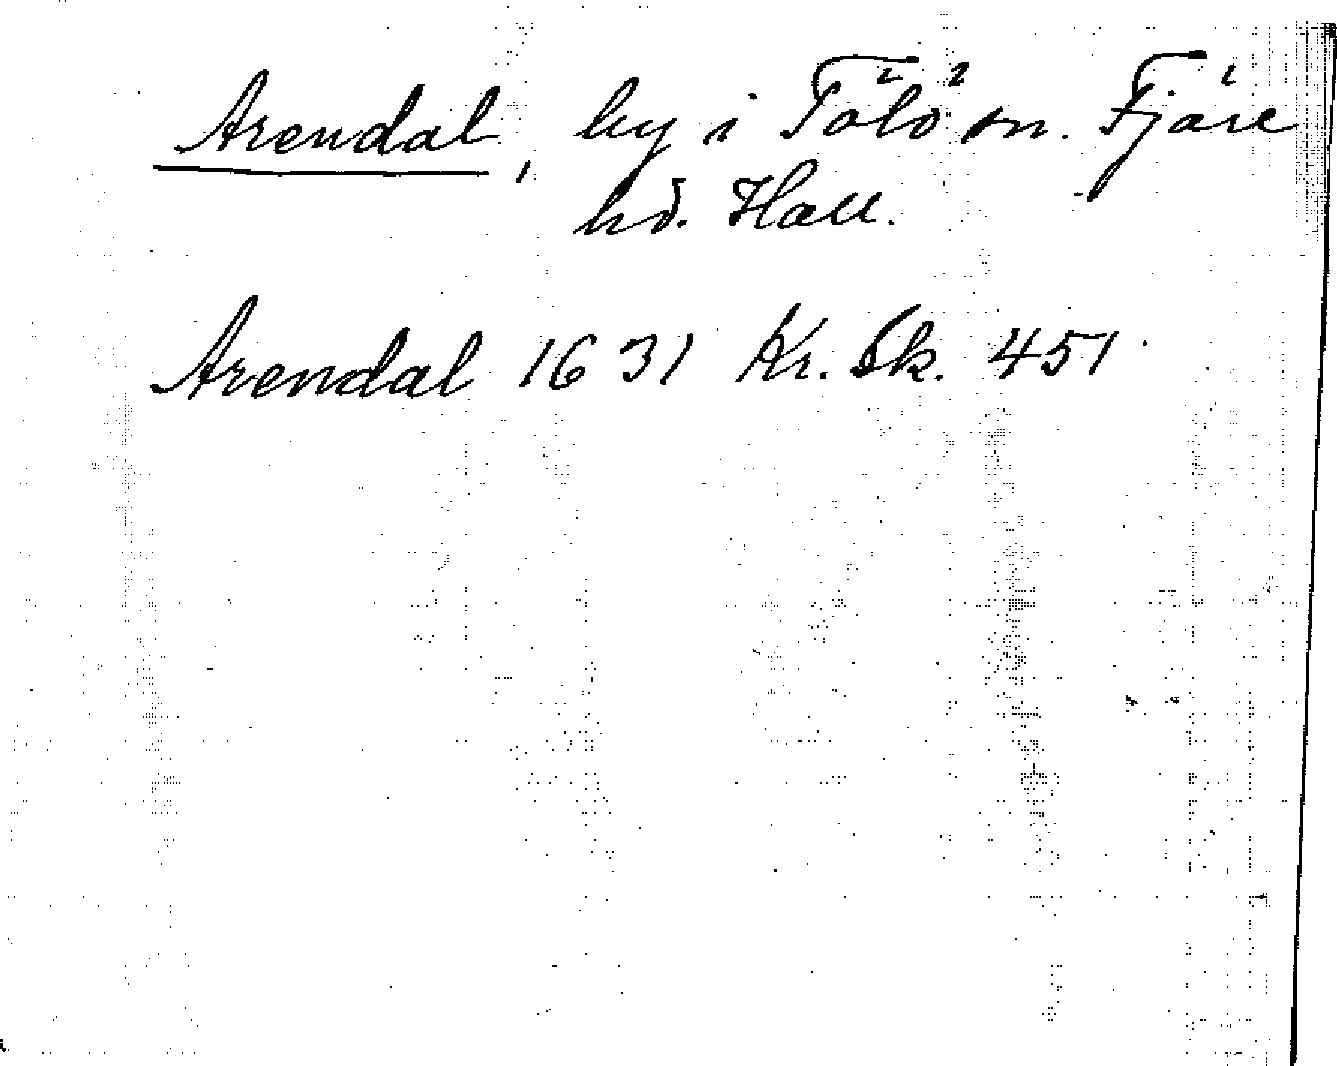 Arendal, by i Tölö sn. Fjäre
hd. Hall.
Arendal 1631 Kr. Sk. 451